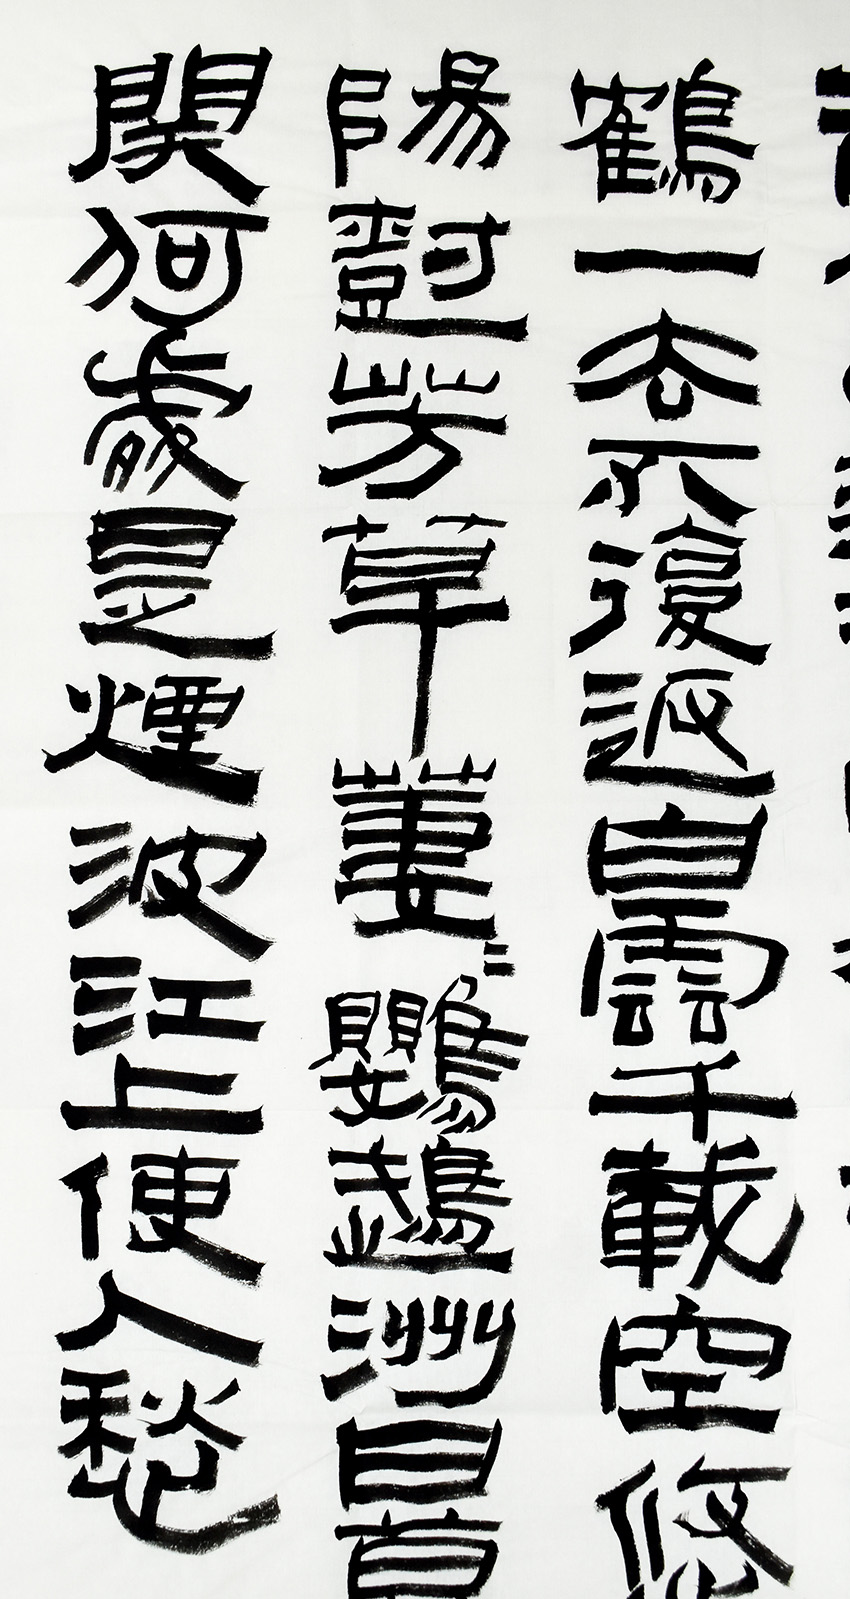 鶴一去不復返白雲千載空悠
陽樹芳草萋〻鸚鵡洲日暮
関何處是煙波江上使人愁